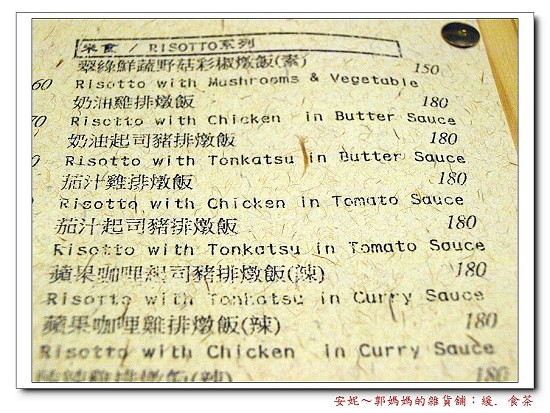 米食 / RISOTTO系列
翠綠鮮蔬野菇彩椒燉飯(素) 150
60 Risotto with Mushrooms & Vegetable
奶油雞排燉飯 180
70 Risotto with Chicken in Butter Sauce
奶油起司豬排燉飯 180
0 Risotto with Tonkatsu in Butter Sauce
茄汁雞排燉飯 180
Risotto with Chicken in Tomato Sauce
茄汁起司豬排燉飯 180
Risotto with Tonkatsu in Tomato Sauce
蘋果咖哩起司豬排燉飯(辣) 180
Risotto with Tonkatsu in Curry Sauce
蘋果咖哩雞排燉飯(辣) 180
Risotto with Chicken in Curry Sauce
燉飯(辣) 180
安妮～郭媽媽的雜貨舖：緩．食茶